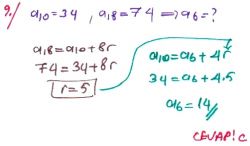 9/ a10=34 , a18=74 ⟹ a6=?
a18=a10+8r
74=34+8r
r=5
a10=a6+4r
34=a6+4.5
a6=14//
CEVAP!C